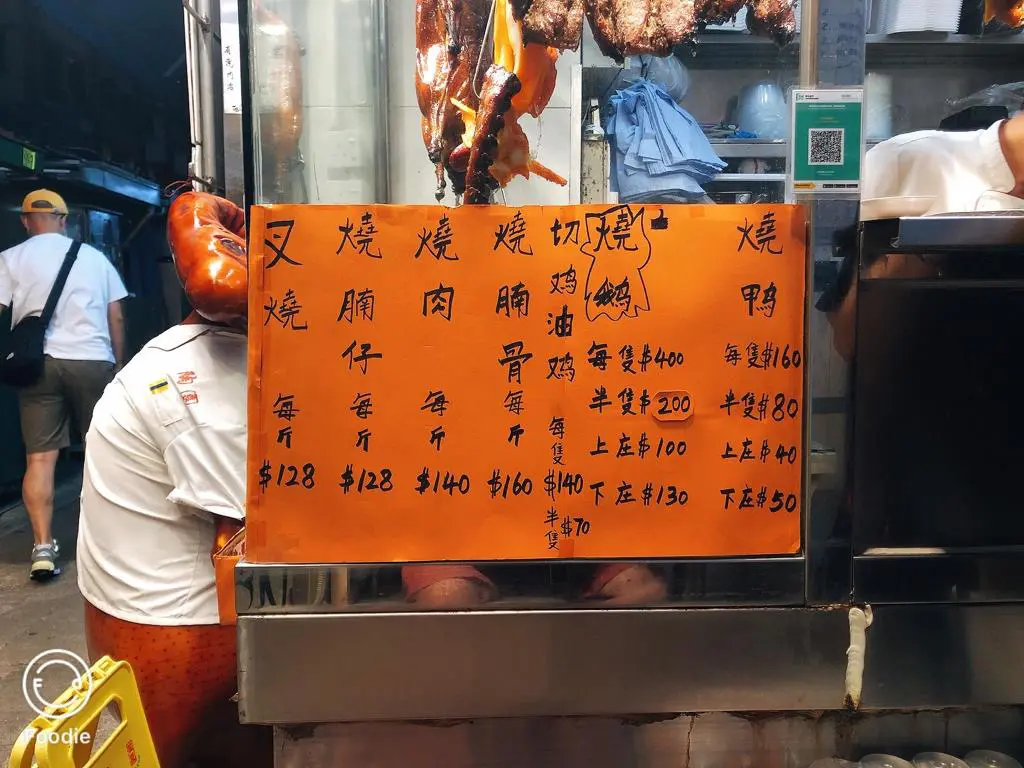 叉燒
每斤
$128
燒腩仔
每斤
$128
燒肉
每斤
$140
燒腩骨
每斤
$160
切鸡油鸡
每隻
$140
半隻$70
燒鹅
每隻$400
半隻$200
上庄$100
下庄$130
燒鸭
每隻$160
半隻$80
上庄$40
下庄$50
Foodie